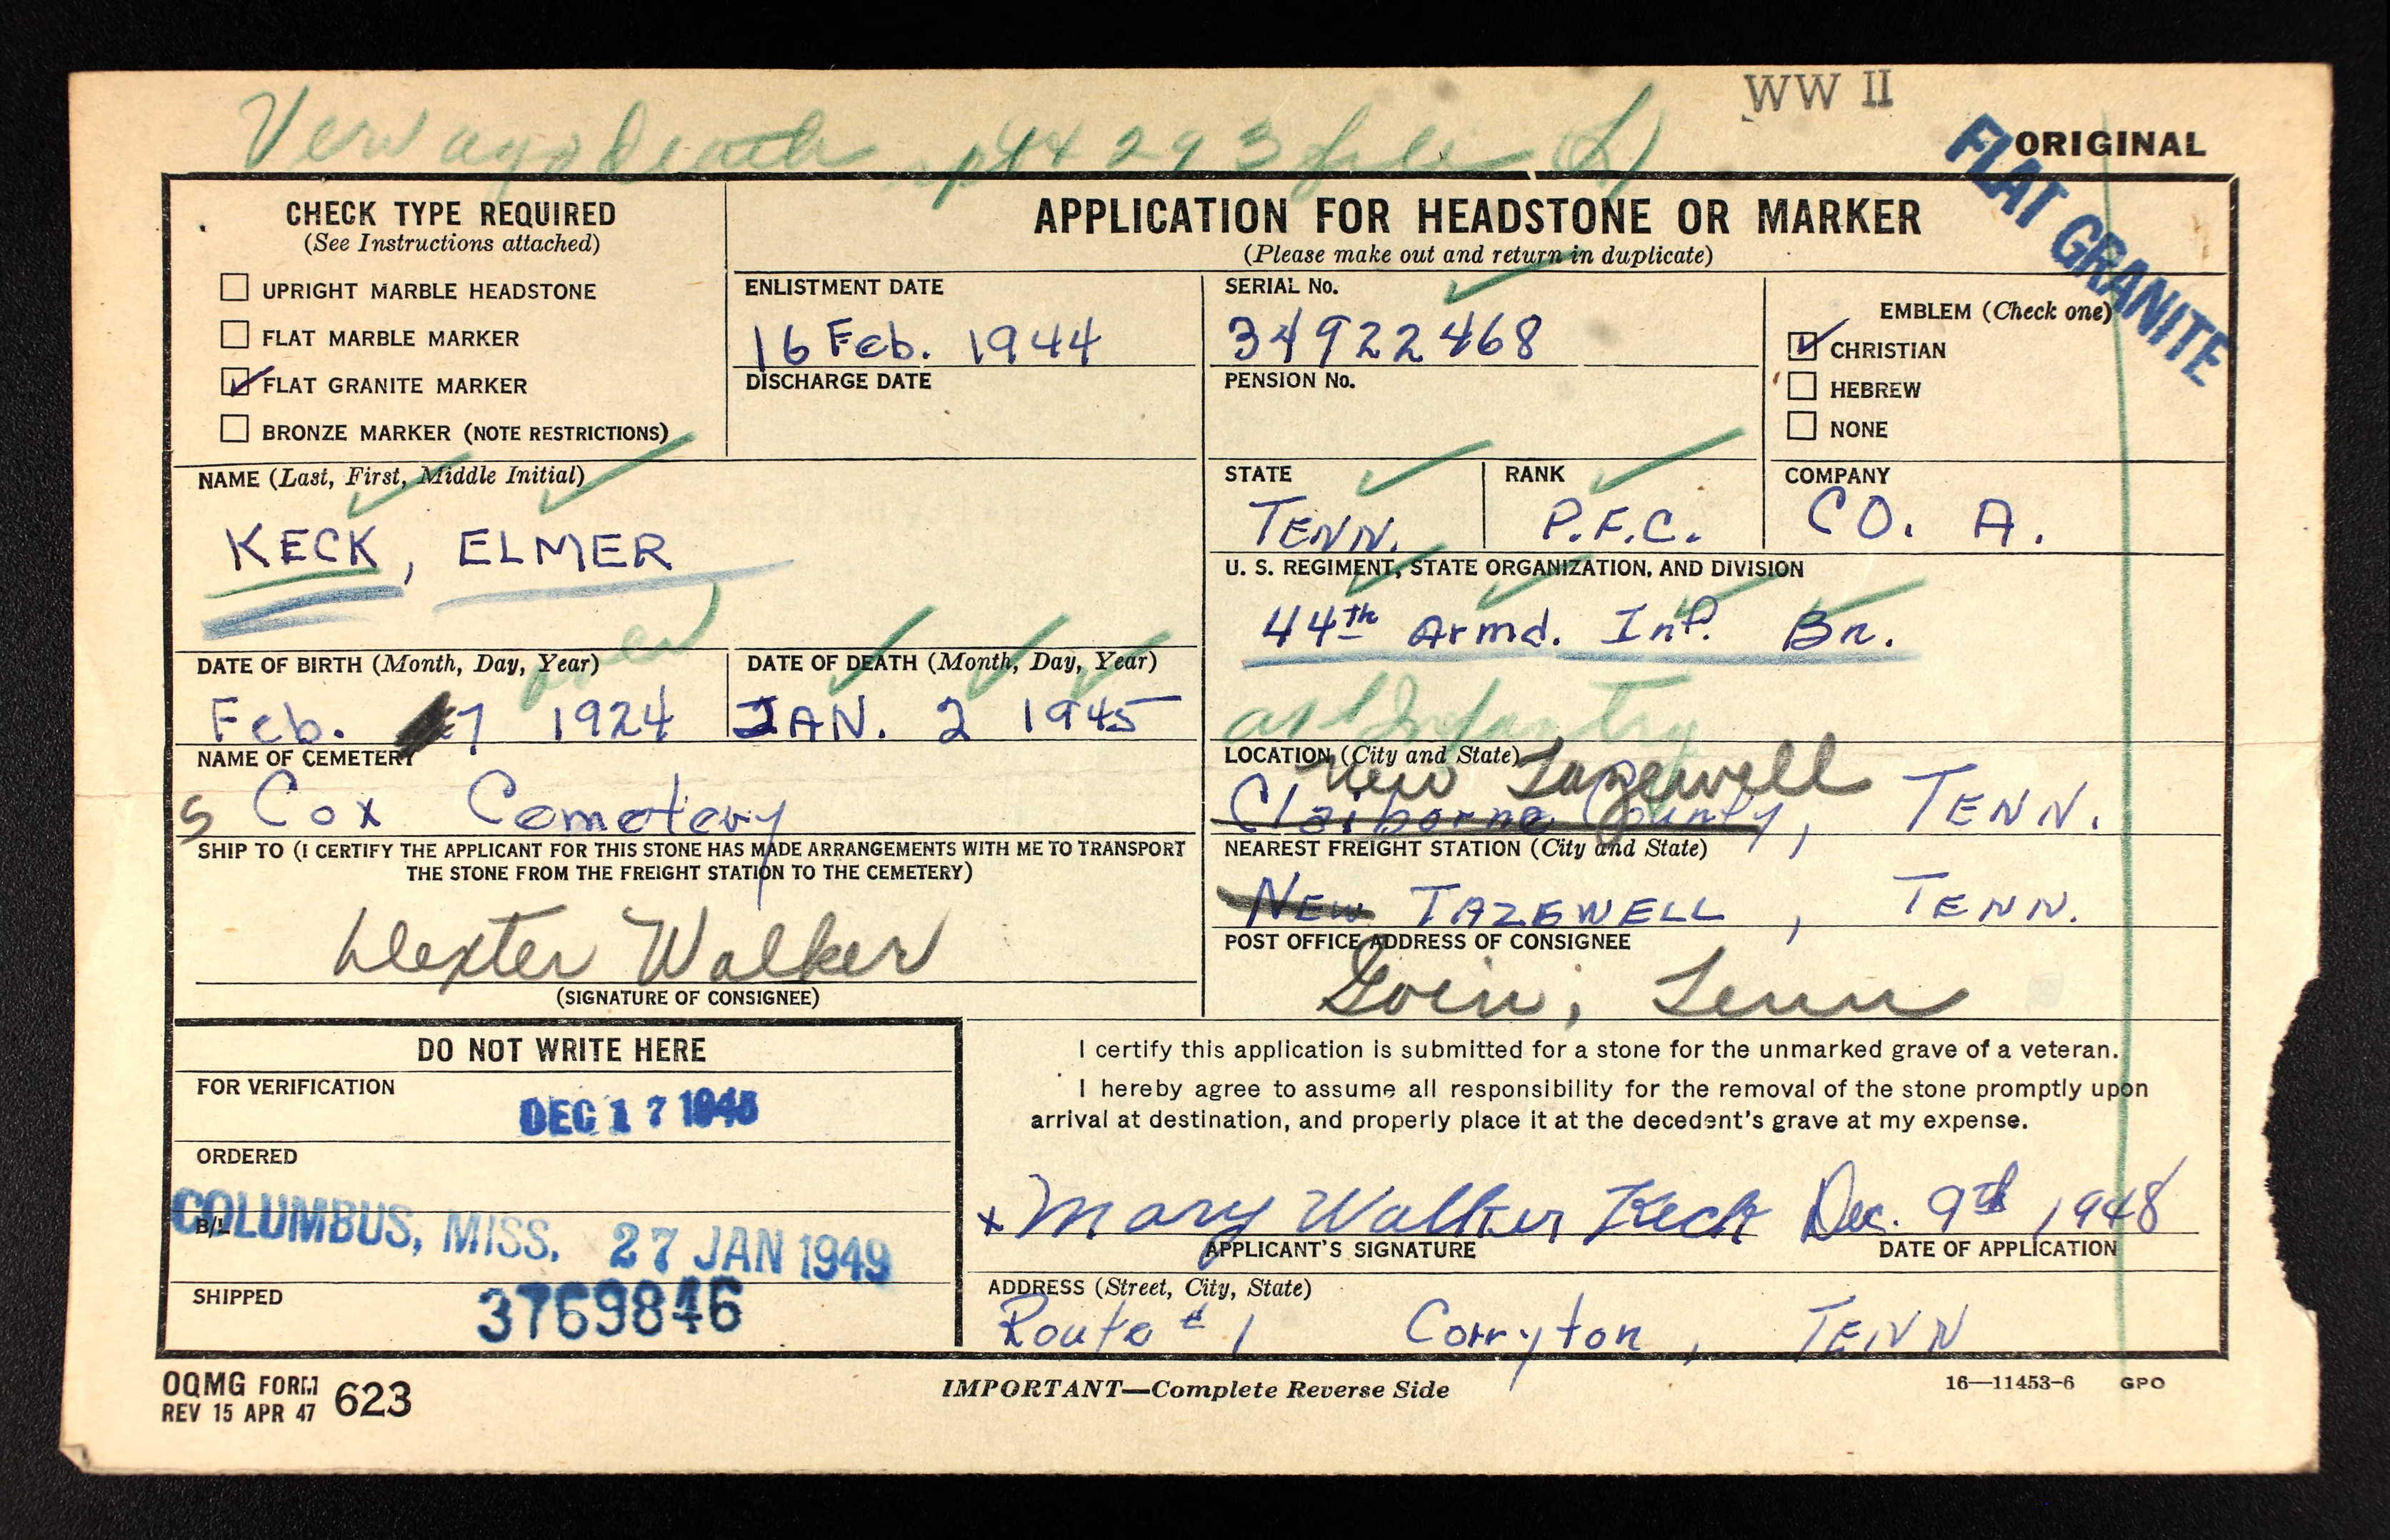 WW II
ORIGINAL
FLAT GRANITE
death
CHECK TYPE REQUIRED
(See Instructions attached)
UPRIGHT MARBLE HEADSTONE
FLAT MARBLE MARKER
FLAT GRANITE MARKER
BRONZE MARKER (NOTE RESTRICTIONS)
APPLICATION FOR HEADSTONE OR MARKER
(Please make out and return in duplicate)
ENLISTMENT DATE
16 Feb. 1944
DISCHARGE DATE
SERIAL No.
34922468
PENSION No.
EMBLEM (Check one)
CHRISTIAN
HEBREW
NONE
NAME (Last, First, Middle Initial)
KECK, ELMER
STATE
TENN.
RANK
P.F.C.
COMPANY
CO. A.
U. S. REGIMENT, STATE ORGANIZATION, AND DIVISION
44th Armd. Inf. Bn.
Infantry
DATE OF BIRTH (Month, Day, Year)
Feb. 7 1924
DATE OF DEATH (Month, Day, Year)
JAN. 2 1945
NAME OF CEMETERY
S Cox Cemetery
LOCATION (City and State)
New Tazewell
Claiborne County, TENN.
SHIP TO (I CERTIFY THE APPLICANT FOR THIS STONE HAS MADE ARRANGEMENTS WITH ME TO TRANSPORT
THE STONE FROM THE FREIGHT STATION TO THE CEMETERY)
Dexter Walker
(SIGNATURE OF CONSIGNEE)
NEAREST FREIGHT STATION (City and State)
NEW TAZEWELL, TENN.
POST OFFICE ADDRESS OF CONSIGNEE
Goin, Tenn
DO NOT WRITE HERE
FOR VERIFICATION
DEC 17 194
ORDERED
B/L
COLUMBUS, MISS. 27 JAN 1949
SHIPPED
3769846
I certify this application is submitted for a stone for the unmarked grave of a veteran.
I hereby agree to assume all responsibility for the removal of the stone promptly upon
arrival at destination, and properly place it at the decedent's grave at my expense.
x Mary Walker Keck Dec. 9th 1948
APPLICANT'S SIGNATURE
DATE OF APPLICATION
ADDRESS (Street, City, State)
Route # 1 Corryton, TENN
OQMG FORM 623
REV 15 APR 47
IMPORTANT—Complete Reverse Side
16—11453-6 GPO